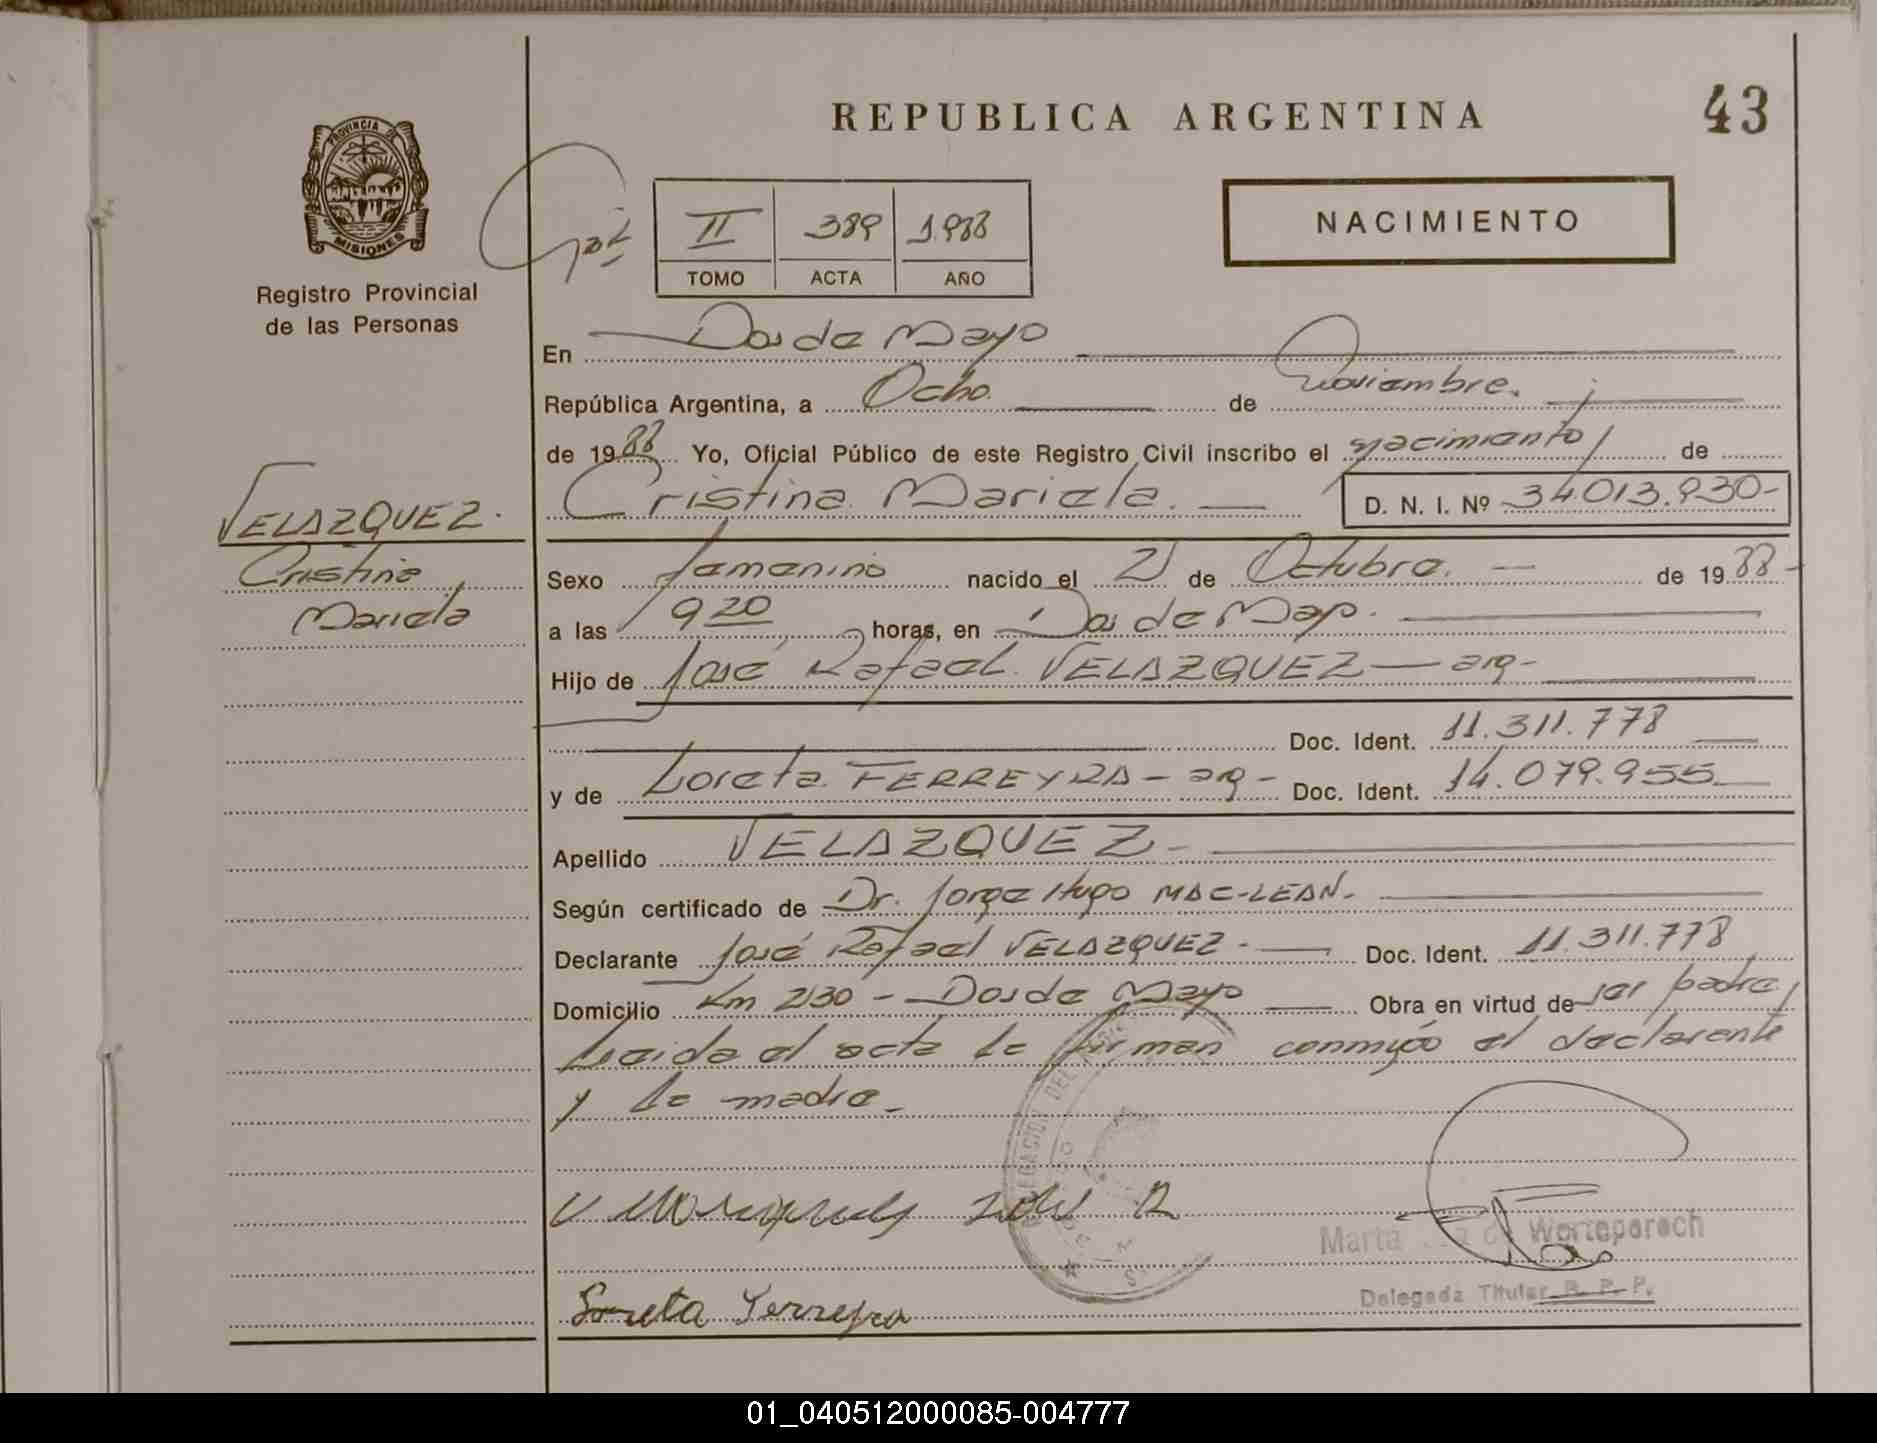 REPUBLICA ARGENTINA
43
PROVINCIA DE
MISIONES
Registro Provincial
de las Personas
NACIMIENTO
II 389 1.988
TOMO ACTA AÑO
En Dos de Mayo
República Argentina, a Ocho de Noviembre
de 1988 Yo, Oficial Público de este Registro Civil inscribo el nacimiento de
Cristina Mariela. D. N. I. Nº 34013.930-
VELAZQUEZ.
Cristina
Mariela
Sexo femenino nacido el 21 de Octubre. de 1988
a las 9 20 horas, en Dos de Mayo.
Hijo de José Rafael VELAZQUEZ - arg-
Doc. Ident. 11.311.778
y de Loreta FERREYRA - arg - Doc. Ident. 14.079.955
Apellido VELAZQUEZ -
Según certificado de Dr. Jorge Hugo MAC-LEAN-
Declarante José Rafael VELAZQUEZ - Doc. Ident. 11.311.778
Domicilio Km 230 - Dos de Mayo Obra en virtud de ser padre,
Leida el acta la firman conmigo el declarante
y la madre-
DELEGACION DEL
Marta de
Loreta Ferreyra
Delegada Titular R. P. P.
01_040512000085-004777